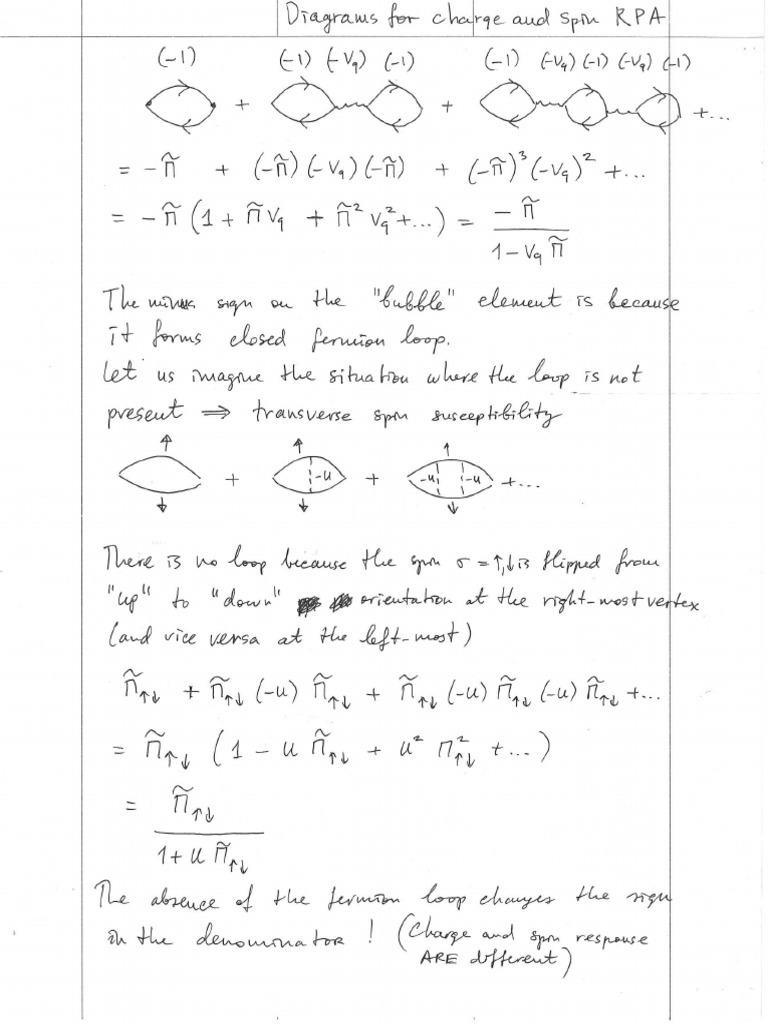 Diagrams for charge and spin RPA
(-1) (-1) (-Vq) (-1) (-1) (-Vq) (-1) (-Vq) (-1)
+ + +...
= -Π̃ + (-Π̃)(-Vq)(-Π̃) + (-Π̃)³(-Vq)² +...
= -Π̃ (1 + Π̃Vq + Π̃²Vq² +...) = -Π̃ / (1 - Vq Π̃)
The minus sign on the "bubble" element is because
it forms closed fermion loop.
Let us imagine the situation where the loop is not
present ⇒ transverse spin susceptibility
↑ ↑ ↑
+ -u + -u -u +...
↓ ↓ ↓
There is no loop because the spin σ=↑,↓ is flipped from
"up" to "down" orientation at the right-most vertex
(and vice versa at the left-most)
Π̃↑↓ + Π̃↑↓ (-u) Π̃↑↓ + Π̃↑↓ (-u) Π̃↑↓ (-u) Π̃↑↓ +...
= Π̃↑↓ (1 - u Π̃↑↓ + u² Π²↑↓ +...)
= Π̃↑↓ / (1 + u Π̃↑↓)
The absence of the fermion loop changes the sign
in the denominator ! (Charge and spin response
ARE different)